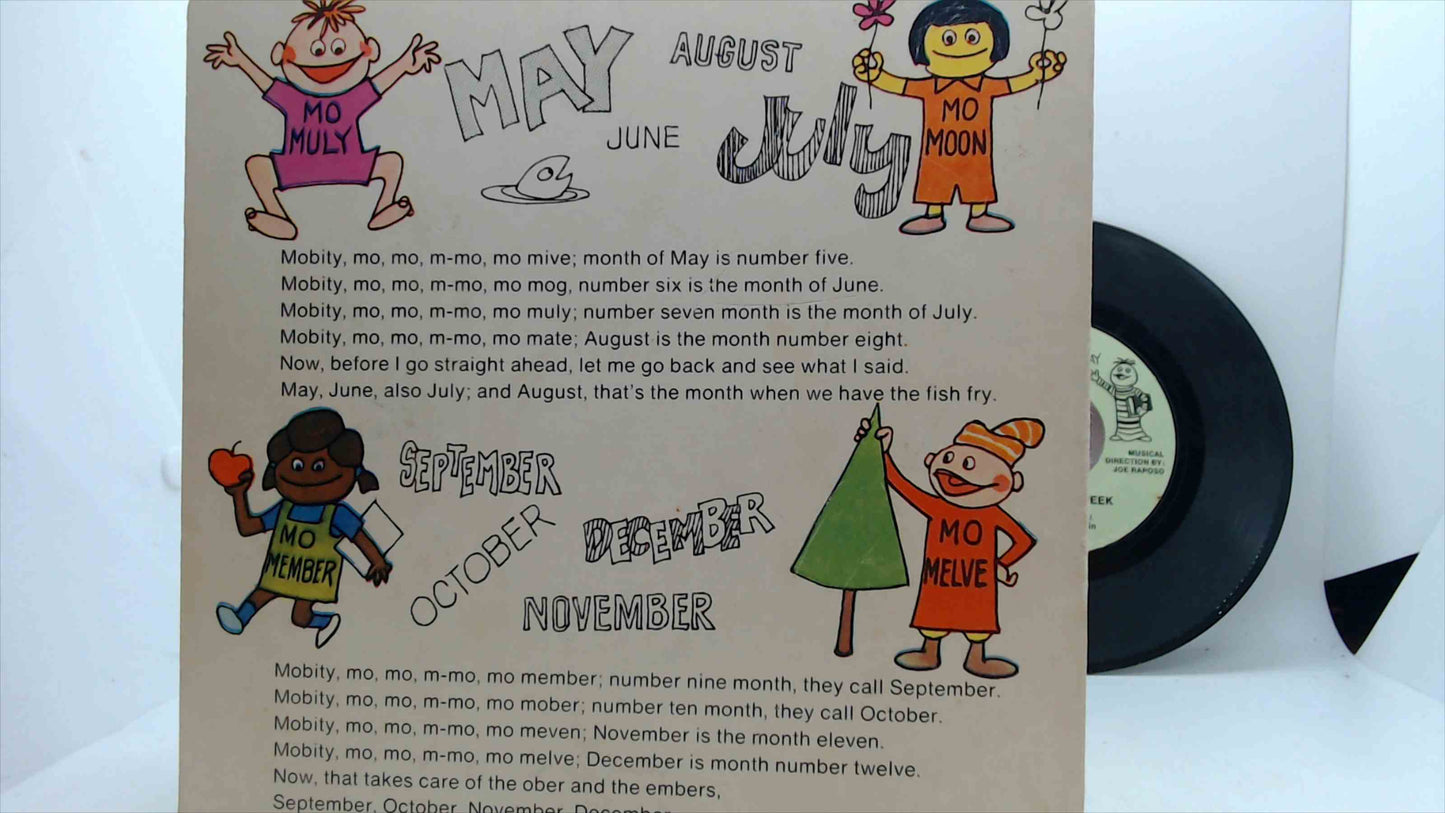 MO
MULY
MAY
AUGUST
JUNE
July
MO
MOON
Mobity, mo, mo, m-mo, mo mive; month of May is number five.
Mobity, mo, mo, m-mo, mo mog, number six is the month of June.
Mobity, mo, mo, m-mo, mo muly; number seven month is the month of July.
Mobity, mo, mo, m-mo, mo mate; August is the month number eight.
Now, before I go straight ahead, let me go back and see what I said.
May, June, also July; and August, that's the month when we have the fish fry.
MO
MEMBER
SEPTEMBER
OCTOBER
DECEMBER
NOVEMBER
MO
MELVE
Mobity, mo, mo, m-mo, mo member; number nine month, they call September.
Mobity, mo, mo, m-mo, mo mober; number ten month, they call October.
Mobity, mo, mo, m-mo, mo meven; November is the month eleven.
Mobity, mo, mo, m-mo, mo melve; December is month number twelve.
Now, that takes care of the ober and the embers,
September, October, November, December
MUSICAL
DIRECTION BY:
JOE RAPOSO
EEK